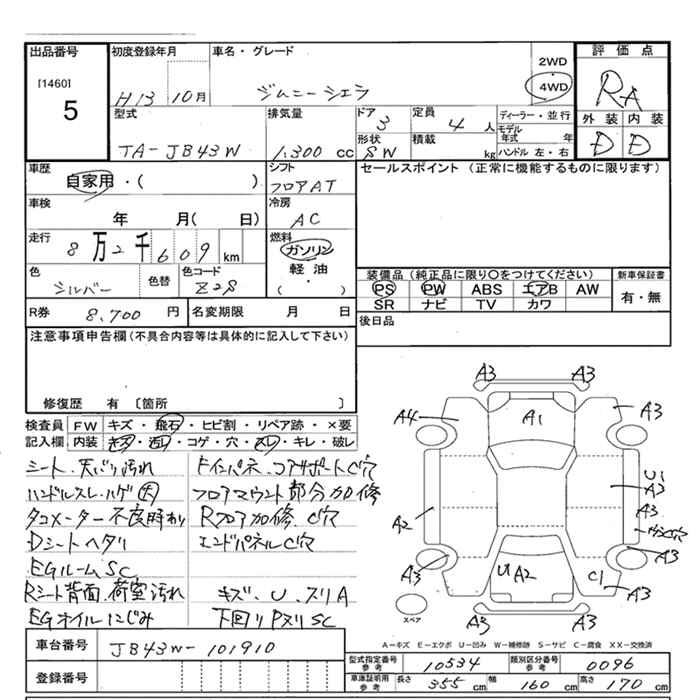 出品番号 初度登録年月 車名・グレード 評価点
[1460] 2WD
5 H13 10月 ジムニーシエラ 4WD RA
型式 排気量 ドア 定員 ディーラー・並行 外装 内装
3 4 人 モデル年式 年
TA-JB43W 1.300 cc 形状 積載 kg ハンドル 左・右 D D
SW
車歴 シフト セールスポイント (正常に機能するものに限ります)
自家用・( ) フロアAT
車検 冷房
年 月( 日) AC
走行 燃料
8万2千609km ガソリン
色 色替 色コード 軽油・ 装備品(純正品に限り○をつけてください) 新車保証書
シルバー Z2S ( ) PS PW ABS エアB AW 有・無
SR ナビ TV カワ
R券 8,700 円 名変期限 月 日 後日品
注意事項申告欄(不具合内容等は具体的に記入して下さい)
修復歴 有 〔箇所 〕
検査員 FW キズ・飛石・ヒビ割・リペア跡・×要
記入欄 内装 キズ・汚レ・コゲ・穴・スレ・キレ・破レ
シート、天バリ汚れ ドインパネ、コアサポートC穴
ハンドルスレ、ハゲ大 フロアマウント部分加修
タコメーター不良時わり Rフロア加修、C穴
Dシートヘタリ エンドパネルC穴
EGルームSC
Rシート背面、荷室汚れ キズ、U、スリA
EGオイルにじみ 下回りPヌリSC
A3 A3
A4 A1 A3
U1
A3
A2 A3
C穴
A3 U A2 C1 A3
A3 A3 A3
スペア
A-キズ E-エクボ U-凹み W-補修跡 S-サビ C-腐食 XX-交換済
車台番号 JB43W-101910
登録番号 型式指定番号 参考 10534 類別区分番号 参考 0096
車庫証明用 参考 長さ 355 cm 幅 160 cm 高さ 170 cm